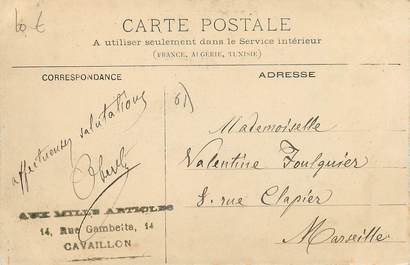 60 €
CARTE POSTALE
A utiliser seulement dans le Service intérieur
(FRANCE, ALGÉRIE, TUNISIE)
CORRESPONDANCE
ADRESSE
affectueuses salutations
AUX MILLE ARTICLES
14, Rue Gambetta, 14
CAVAILLON
Mademoiselle
Valentine Foulquier
8. rue Clapier
Marseille